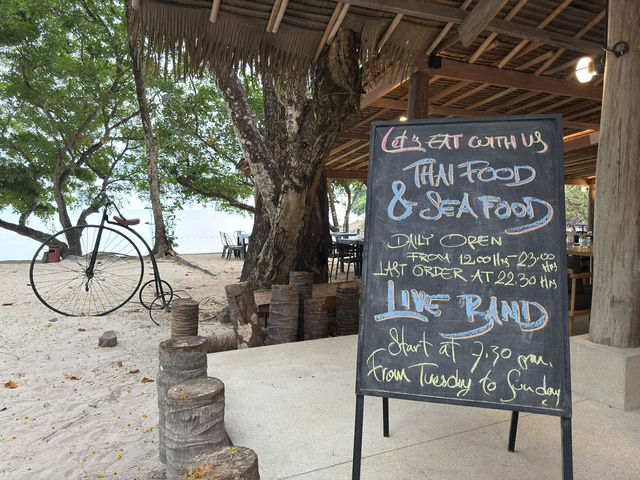 Let's EAT WITH US
THAI FOOD
& SEA FOOD
DAILY OPEN
FROM 12.00 Hrs - 23.00 Hrs
LAST ORDER AT 22.30 Hrs
LIVE BAND
Start at 7.30 pm.
From Tuesday to Sunday